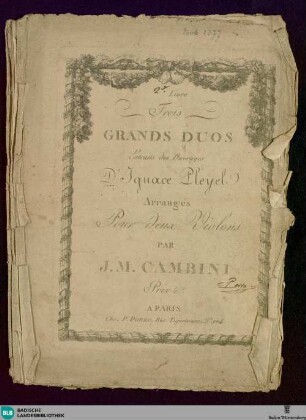 2e. Livre
Trois
GRANDS DUOS
Extraits des Ouvrages
D'Ignace Pleyel
Arrangés
Pour deux Violons
PAR
J. M. CAMBINI
Prix
A PARIS,
Chez
BLB
BADISCHE
LANDESBIBLIOTHEK